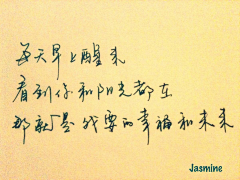 每天早上醒来
看到你和阳光都在
那就是我要的幸福和未来
Jasmine